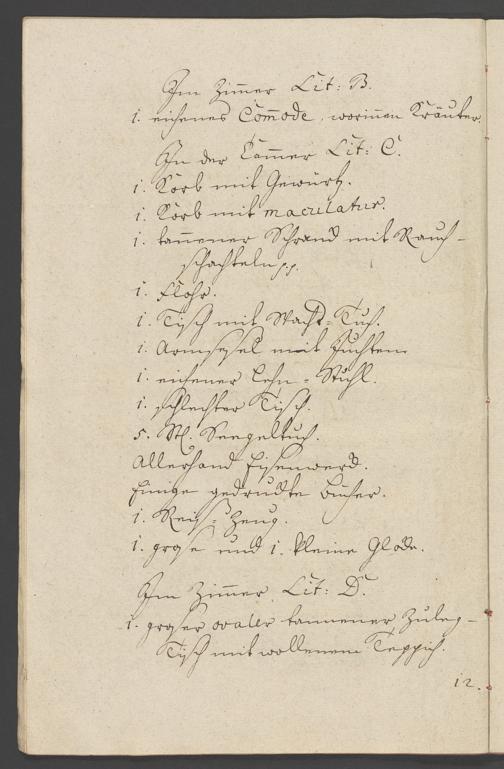 Im Zim̄er Lit: B.
1. eichenes Com̄ode, worin̄en Kräuter.
In der Cam̄er Lit: C.
1. Korb mit Gewürtz.
1. Korb mit maculatur.
1. tan̄ener Schranck mit Rauch-
schachteln pp.
1. Flohr.
1. Tisch mit Wachs-Tuch.
1. Armsessel mit Juchten
1. eichener Lehn-Stuhl.
1. schlechter Tisch.
5. St. Seegeltuch.
Allerhand Eisenwerck.
Einige gedruckte Bücher.
1. Reiß-Zeug.
1. grose und 1. kleine Glocke.
Im Zim̄er Lit: D.
1. groser ovaler tannener Zuleg-
Tisch mit wollenem Teppich.
12.